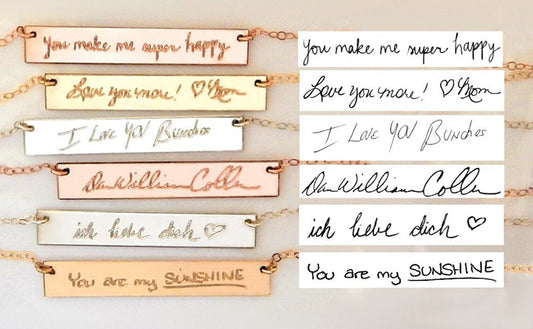 you make me super happy
you make me super happy
Love you more! ♡ Mom
Love you more! ♡ Mom
I Love YOU Bunches
I Love YOU Bunches
Dan William Collen
Dan William Collen
ich liebe dich ♡
ich liebe dich ♡
You are my SUNSHINE
You are my SUNSHINE